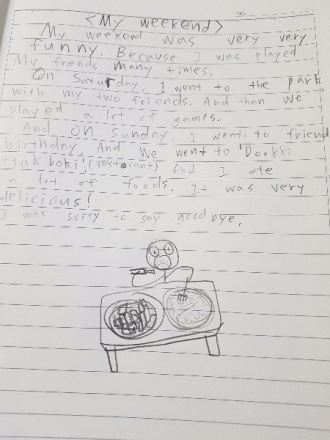 <My weekend>
My weekend was very very
funny. Because I was played
My frends many times.
On Saturday, I went to the park
with my two friends. And than we
played a lot of games.
And on Sunday, I went to friend
birthday. And we went to 'Dookki
ttukboki'(restorant) And I ate
a lot of foods. It was very
delicious!
I was sorry to say goodbye.